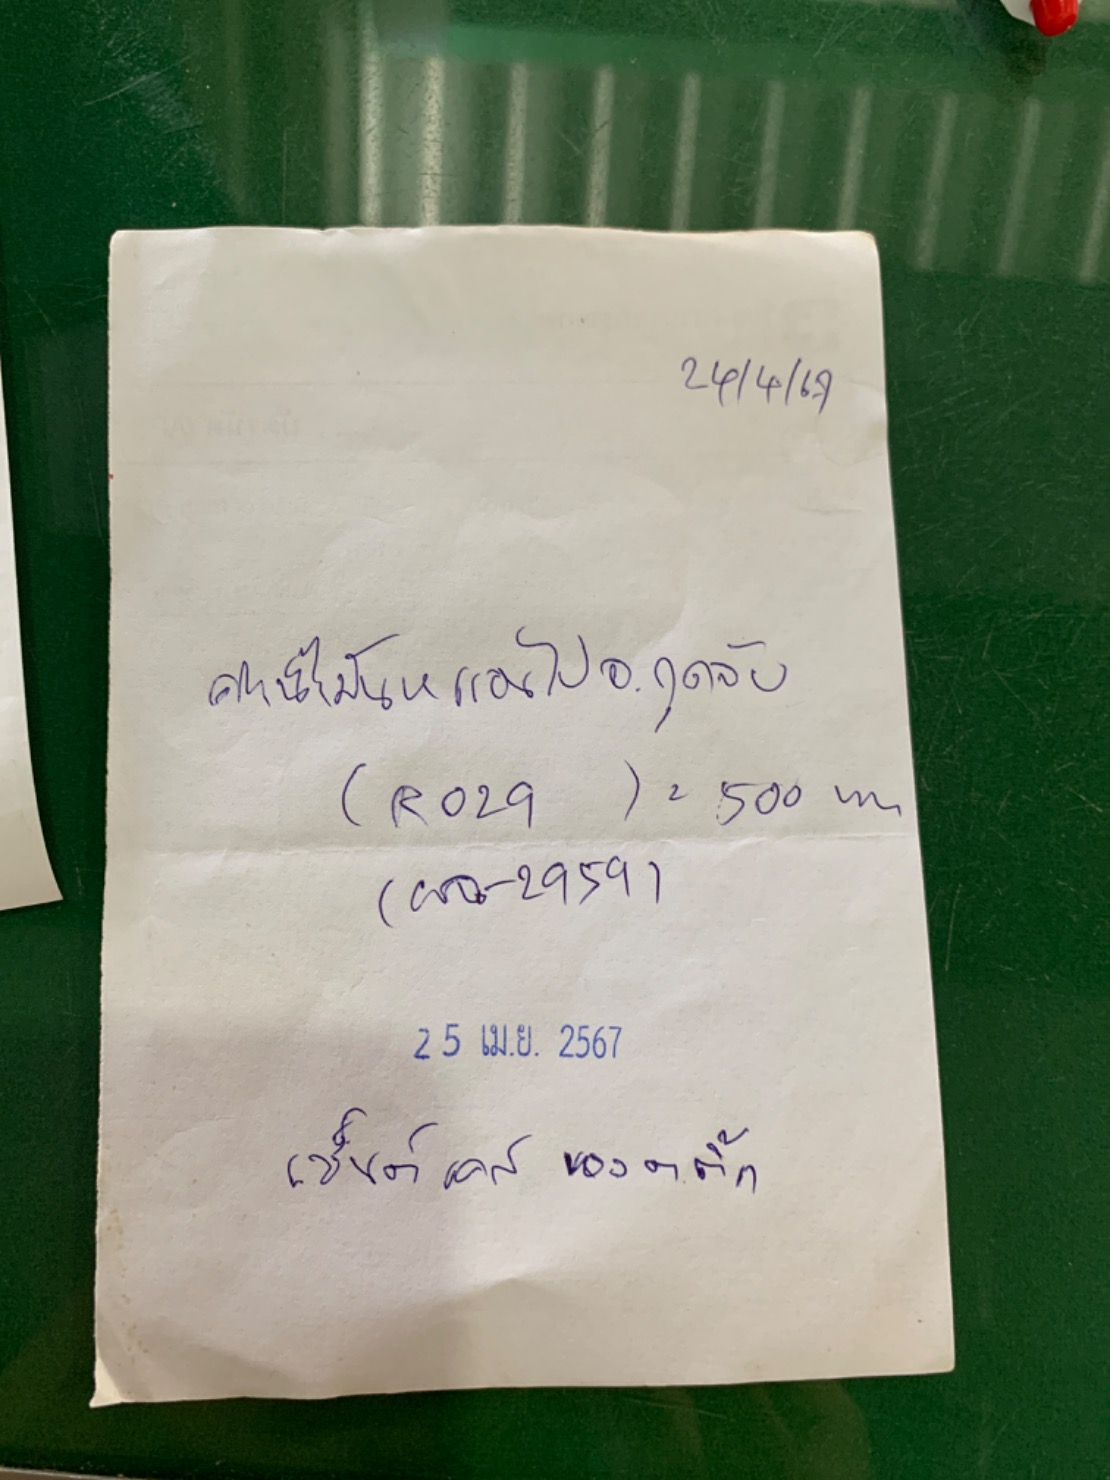 24/4/67
ค่าน้ำมันหลอนไป อ.กุดจับ
(R029 ) = 500 บาท
(ผฉ-2959)
25 เม.ย. 2567
เซ็นต์ เคส ของ ต.ติ๊ก